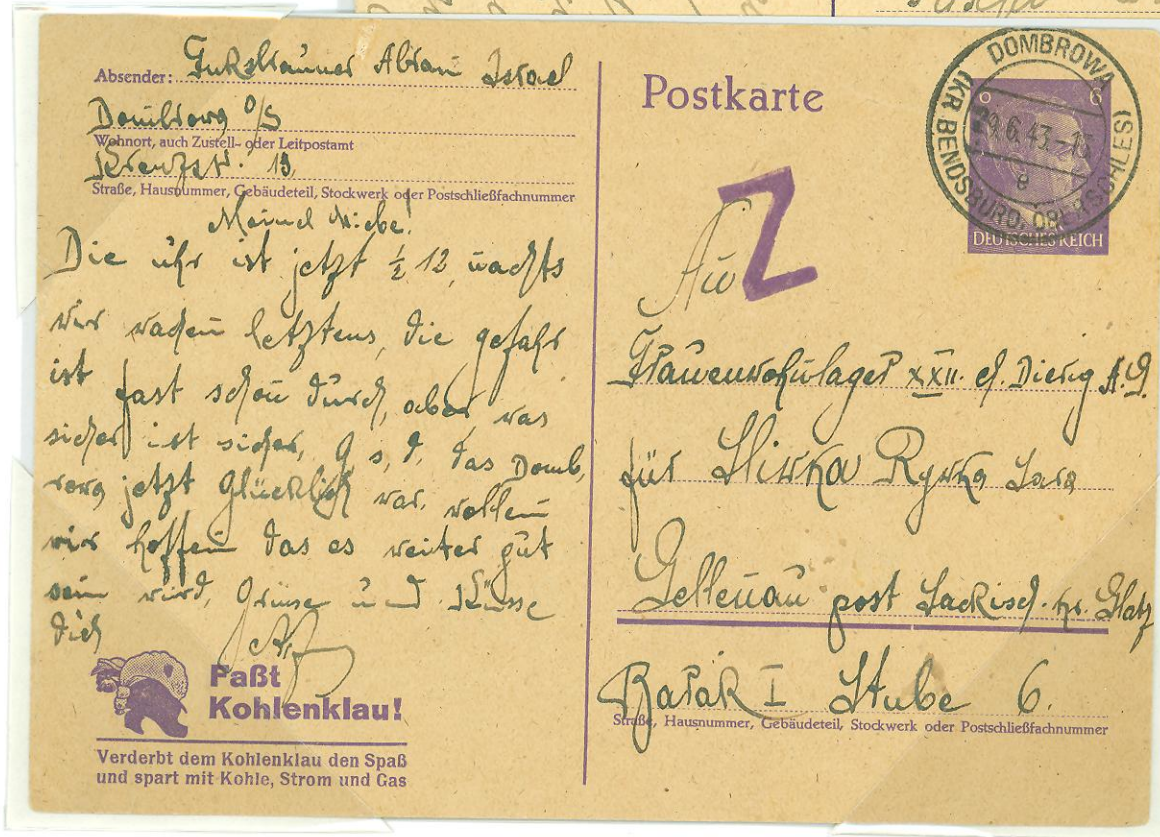 Absender: Abram Israel
Dombrowa O/S
Wohnort, auch Zustell- oder Leitpostamt
Kreuzstr. 19
Straße, Hausnummer, Gebäudeteil, Stockwerk oder Postschließfachnummer
Meine Liebe!
Die uhr ist jetzt ½ 12, nachts
wir wachen letztens, die gefahr
ist fast schon durch, aber was
sicher ist sicher, G s, d, das Domb,
rowa jetzt Glücklich war, wollen
wir hoffen das es weiter gut
sein wird, Grüsse und Küsse
dich
Paßt
Kohlenklau!
Verderbt dem Kohlenklau den Spaß
und spart mit Kohle, Strom und Gas
Postkarte
DOMBROWA
(KR BENDSBURG, OBERSCHLES)
29.6.43.-15
e
6
DEUTSCHES REICH
Z
An
Frauenwohnlager XXII. Dierig A.G.
für Sliwka Rywka Sara
Gellenau post Sackisch. kr. Glatz
Barak I Stube 6.
Straße, Hausnummer, Gebäudeteil, Stockwerk oder Postschließfachnummer